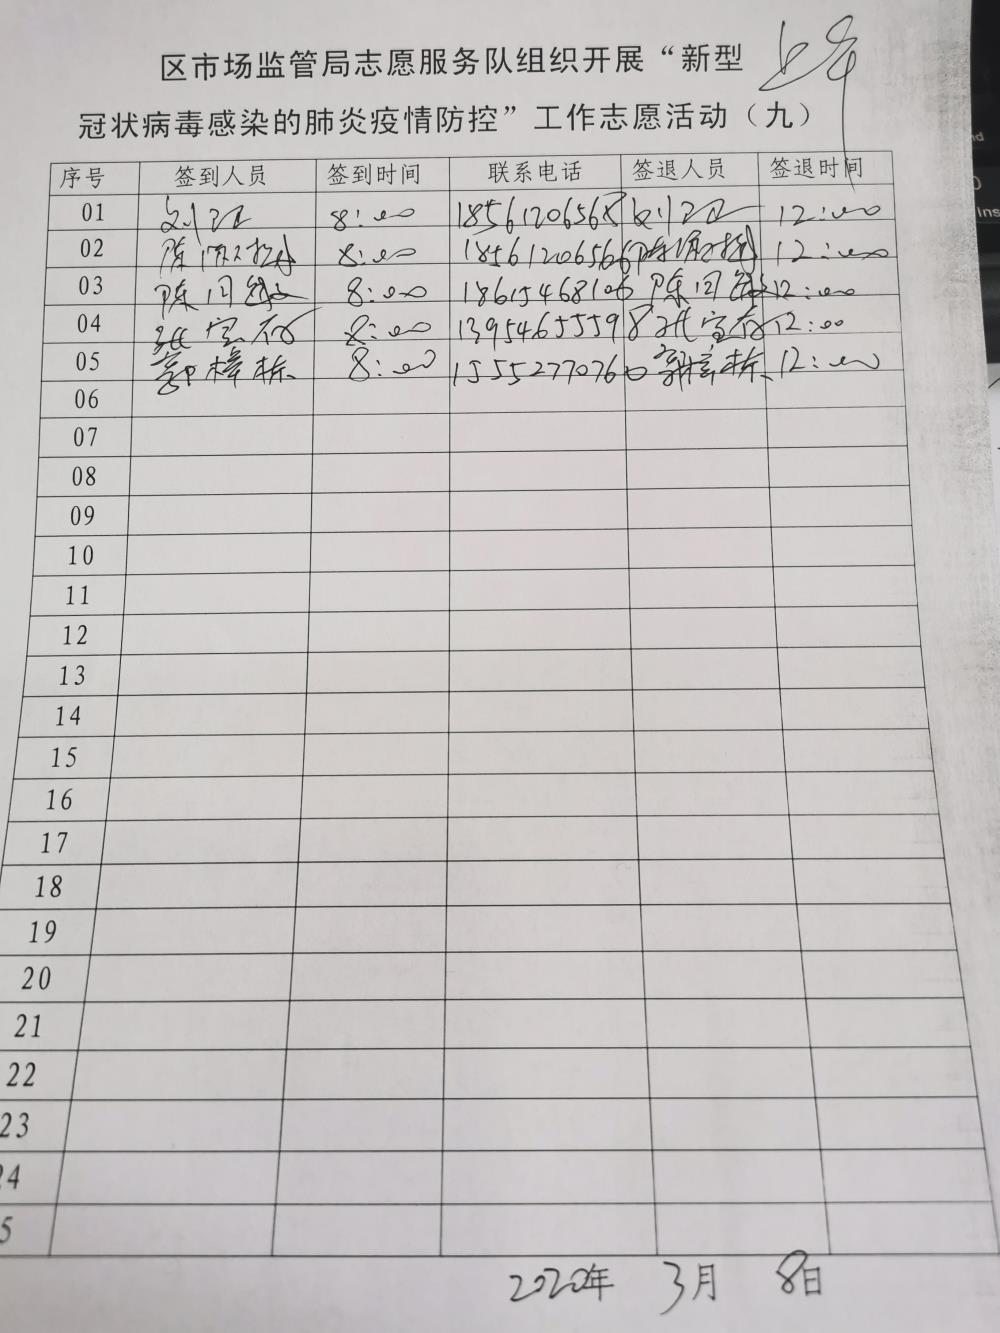 区市场监管局志愿服务队组织开展“新型 上午
冠状病毒感染的肺炎疫情防控”工作志愿活动（九）
序号 签到人员 签到时间 联系电话 签退人员 签退时间
01 刘江 8:00 18561206568 刘江 12:00
02 陈 8:00 18561206566 陈 12:00
03 陈同 8:00 18615468106 陈同 12:00
04 张宝 8:00 13954655598 张宝 12:00
05 郭樟栋 8:00 15552770760 郭樟栋 12:00
06
07
08
09
10
11
12
13
14
15
16
17
18
19
20
21
22
23
24
5
2020年 3月 8日